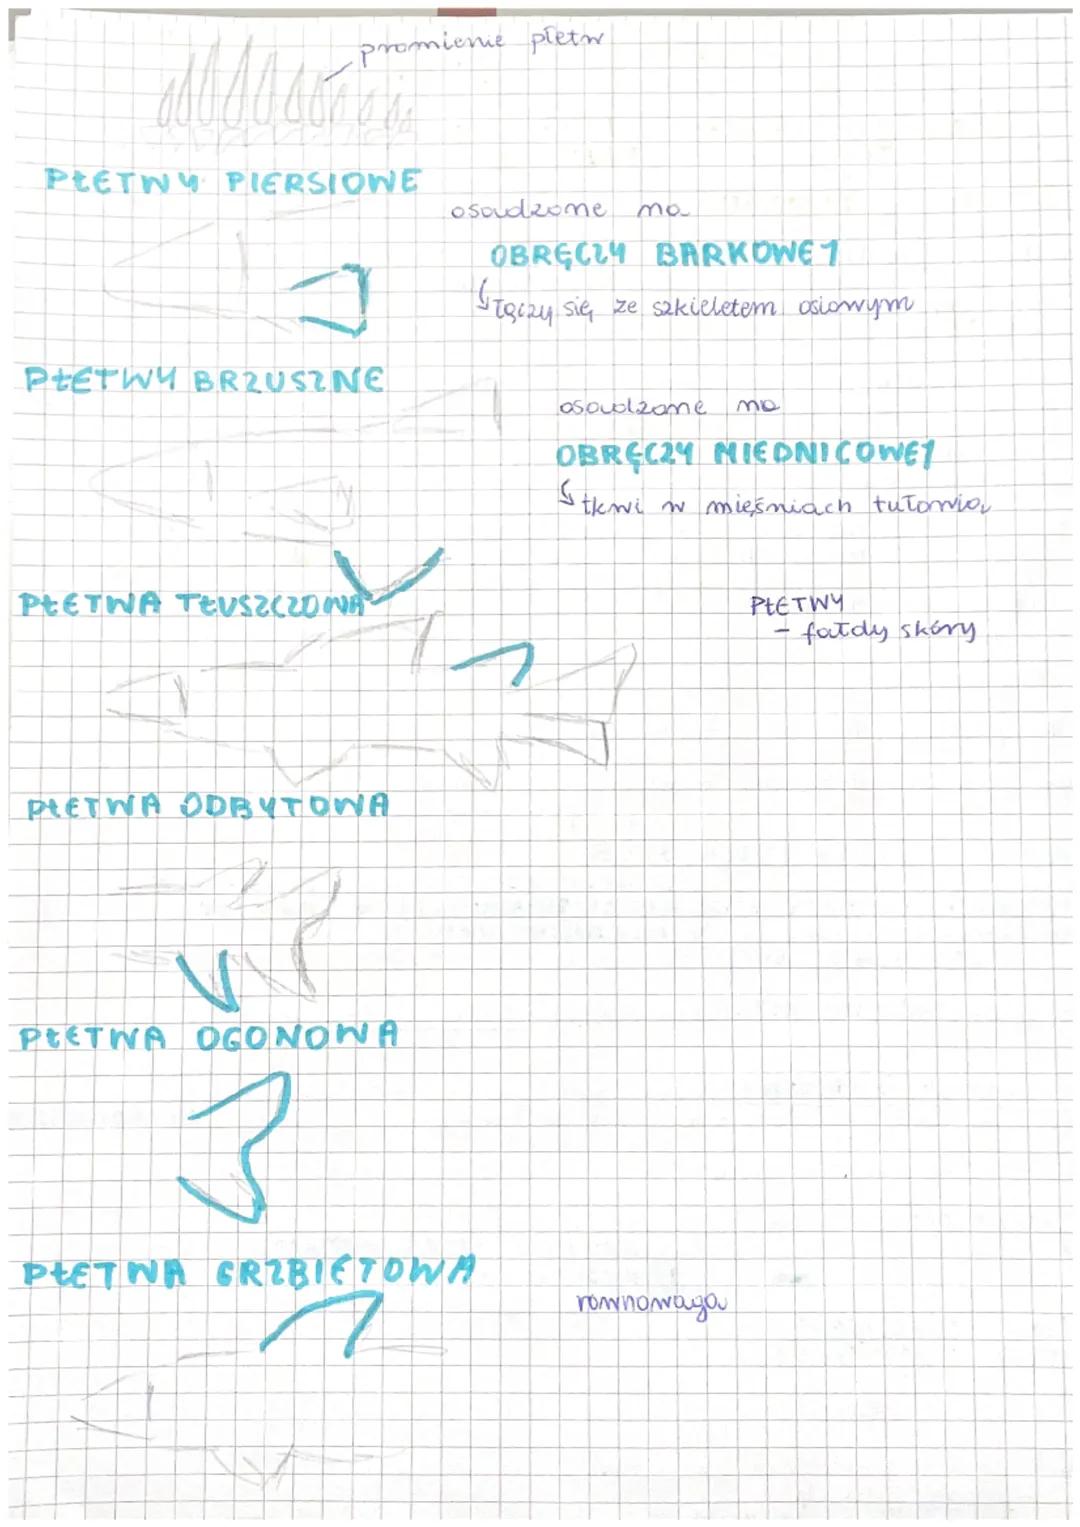 promienie płetw
PŁETWY PIERSIOWE
osadzone na
OBRĘCZY BARKOWEJ
↳ łączy się ze szkieletem osiowym
PŁETWY BRZUSZNE
osadzone na
OBRĘCZY MIEDNICOWEJ
↳ tkwi w mięśniach tułowia
PŁETWA TŁUSZCZOWA
PŁETWY
- fałdy skóry
PŁETWA ODBYTOWA
PŁETWA OGONOWA
PŁETWA GRZBIETOWA
równowaga